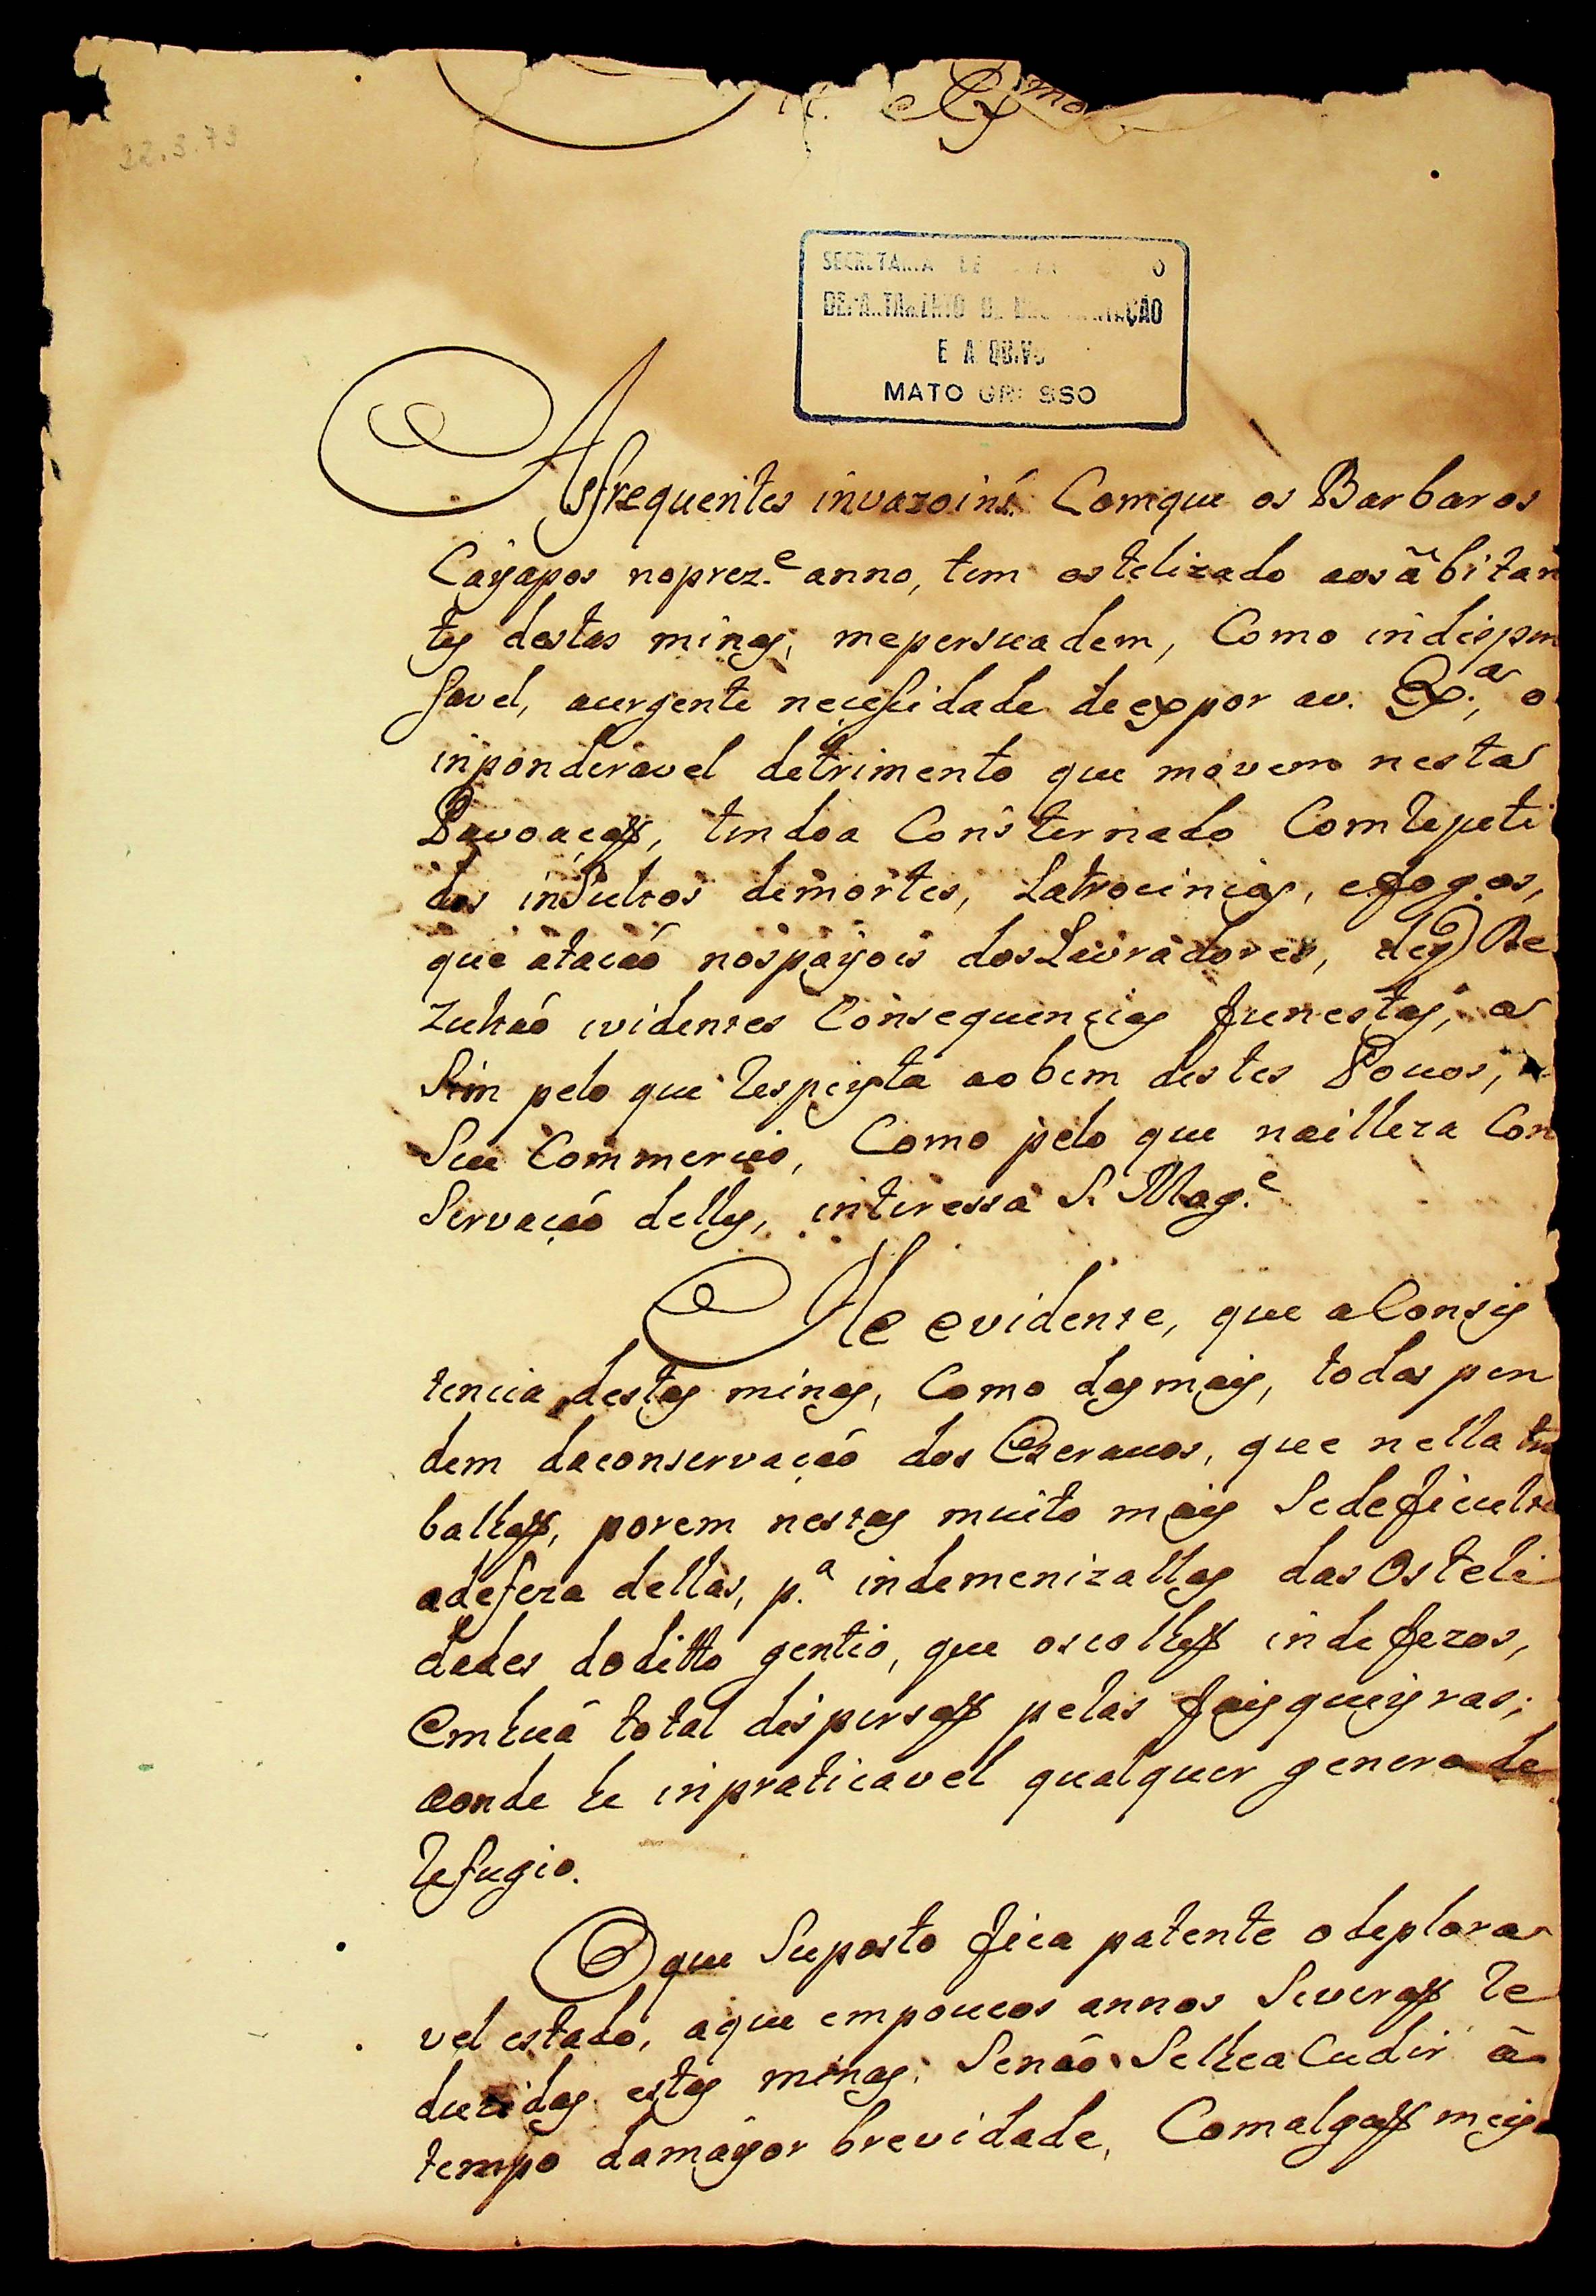 Exmo
22.3.73
SECRETARIA DE
DEPARTAMENTO DE DOCUMENTAÇÃO
E ARQUIVO
MATO GROSSO
Asfrequentes invazoins Comque os Barbaros
Cayapos noprez.e anno, tem ostelizado aos ãbitan
tes destas minas, mepersuadem, Como indispen
savel, aurgente necessidade deexpor av. Ex.a, o
inponderavel detrimento que movem nesta
Povoação, tendoa Consternado Comrepeti
dos insultos demortes, Latrocinios, efogos,
que atacaó nospayois dosLavradores, deq Re
zultaó evidentes Consequencias funestas, a
Sim pelo que respeyta aobem destes Povos, e
Seu Commercio, Como pelo que nailleza Con
Servaçaó delles, interessa S. Mag.e
He evidente, que aConsis
tencia destas minas, Como dasmais, todas pen
dem daconservaçaó dos Escravos, que nella tra
balhaõ, porem nestas muito mais Sedeficulta
adefeza dellas, p.a indemenizallas dasOsteli
dades doditto gentio, que oscolhe indefezos,
Emhuã total dispersaõ pelas fays queyras;
aonde he inpraticavel qualquer genero de
refugio.
Oque Suposto fica patente odeplora
vel estado, aque empoucos annos Severaõ re
duzidas estas minas, Senaó Selheacudir ã
tempo damayor brevidade, Comalgum meyo